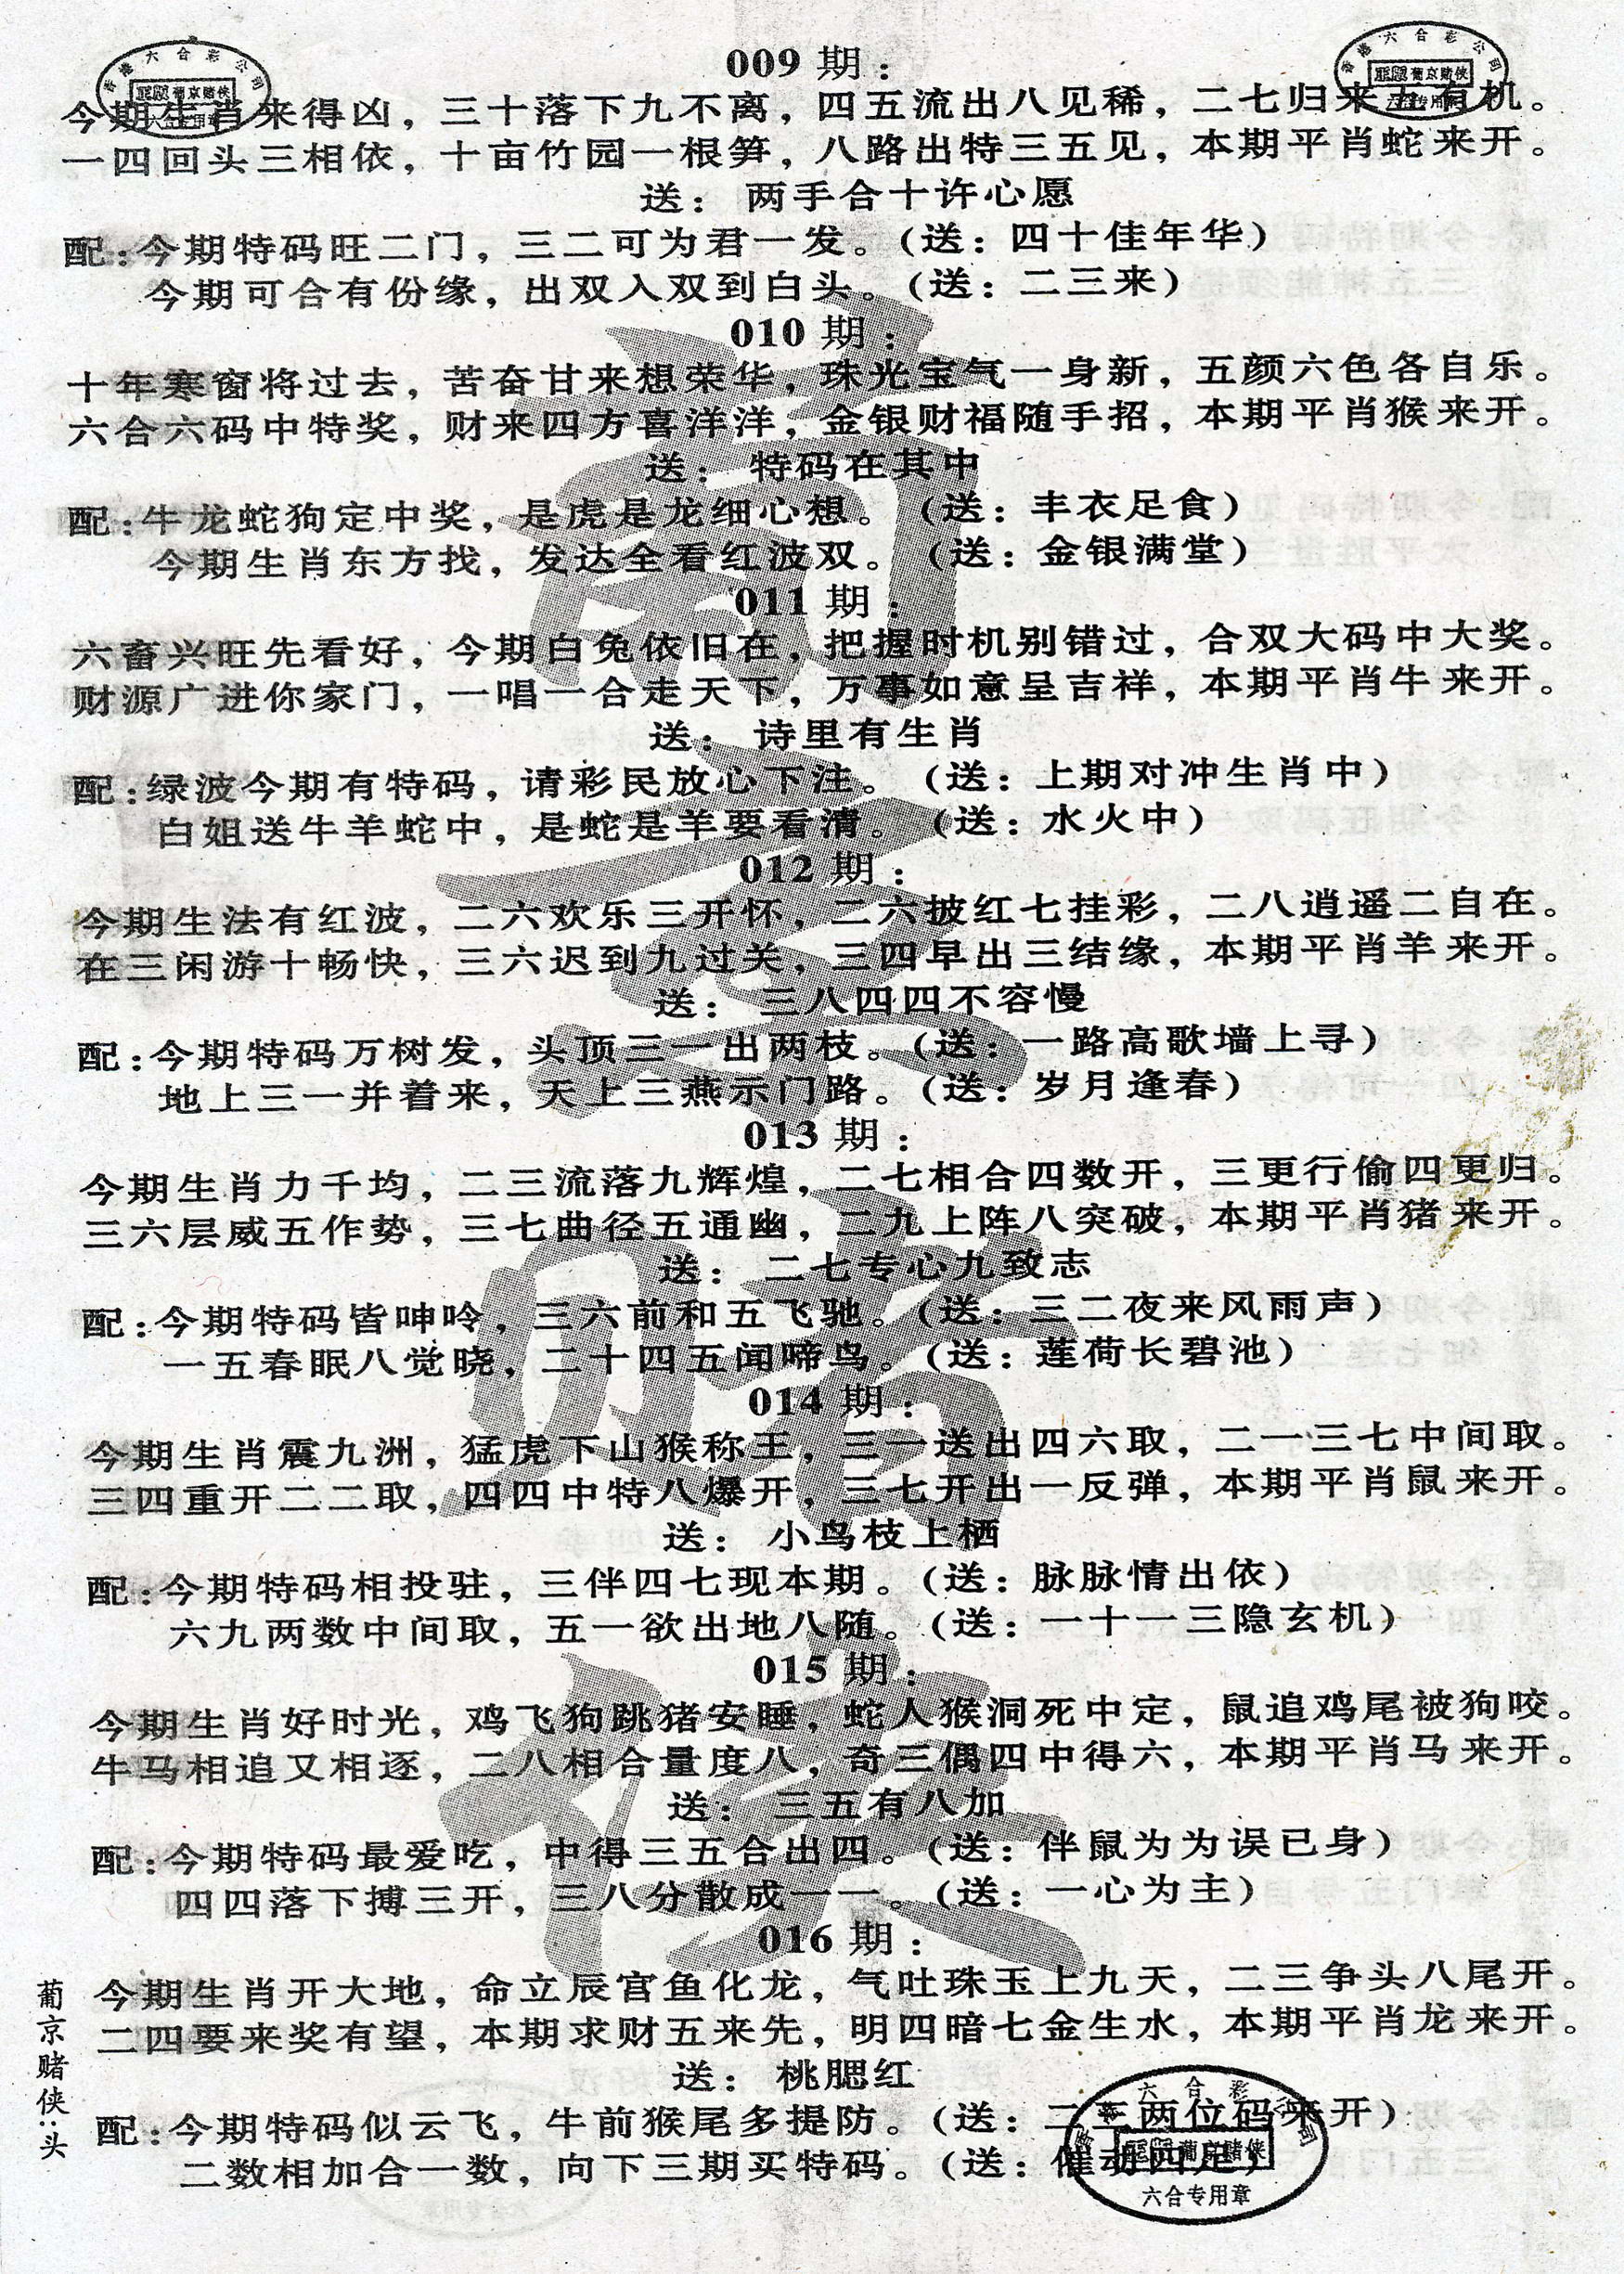 009 期：
今期生肖来得凶，三十落下九不离，四五流出八见稀，二七归来五有机。
一四回头三相依，十亩竹园一根笋，八路出特三五见，本期平肖蛇来开。
送： 两手合十许心愿
配：今期特码旺二门，三二可为君一发。（送：四十佳年华）
今期可合有份缘，出双入双到白头。（送：二三来）
010 期：
十年寒窗将过去，苦奋甘来想荣华，珠光宝气一身新，五颜六色各自乐。
六合六码中特奖，财来四方喜洋洋，金银财福随手招，本期平肖猴来开。
送： 特码在其中
配：牛龙蛇狗定中奖，是虎是龙细心想。（送：丰衣足食）
今期生肖东方找，发达全看红波双。（送：金银满堂）
011 期：
六畜兴旺先看好，今期白兔依旧在，把握时机别错过，合双大码中大奖。
财源广进你家门，一唱一合走天下，万事如意呈吉祥，本期平肖牛来开。
送： 诗里有生肖
配：绿波今期有特码，请彩民放心下注。（送：上期对冲生肖中）
白姐送牛羊蛇中，是蛇是羊要看清。（送：水火中）
012 期：
今期生法有红波，二六欢乐三开怀，二六披红七挂彩，二八逍遥二自在。
在三闲游十畅快，三六迟到九过关，三四早出三结缘，本期平肖羊来开。
送： 三八四四不容慢
配：今期特码万树发，头顶三一出两枝。（送：一路高歌墙上寻）
地上三一并着来，天上三燕示门路。（送：岁月逢春）
013 期：
今期生肖力千均，二三流落九辉煌，二七相合四数开，三更行偷四更归。
三六层威五作势，三七曲径五通幽，二九上阵八突破，本期平肖猪来开。
送： 二七专心九致志
配：今期特码皆呻呤，三六前和五飞驰。（送：三二夜来风雨声）
一五春眠八觉晓，二十四五闻啼鸟。（送：莲荷长碧池）
014 期：
今期生肖震九洲，猛虎下山猴称王，三一送出四六取，二一三七中间取。
三四重开二二取，四四中特八爆开，三七开出一反弹，本期平肖鼠来开。
送： 小鸟枝上栖
配：今期特码相投驻，三伴四七现本期。（送：脉脉情出依）
六九两数中间取，五一欲出地八随。（送：一十一三隐玄机）
015 期：
今期生肖好时光，鸡飞狗跳猪安睡，蛇人猴洞死中定，鼠追鸡尾被狗咬。
牛马相追又相逐，二八相合量度八，奇三偶四中得六，本期平肖马来开。
送： 三五有八加
配：今期特码最爱吃，中得三五合出四。（送：伴鼠为为误已身）
四四落下搏三开，三八分散成一一。（送：一心为主）
016 期：
今期生肖开大地，命立辰宫鱼化龙，气吐珠玉上九天，二三争头八尾开。
二四要来奖有望，本期求财五来先，明四暗七金生水，本期平肖龙来开。
送： 桃腮红
配：今期特码似云飞，牛前猴尾多提防。（送：二三两位码来开）
二数相加合一数，向下三期买特码。（送：催动四足）
葡京赌侠：头
葡京赌侠
香港六合彩公司
葡京赌侠
六合专用章
香港六合彩公司
葡京赌侠
六合专用章
香港六合彩公司
葡京赌侠
六合专用章